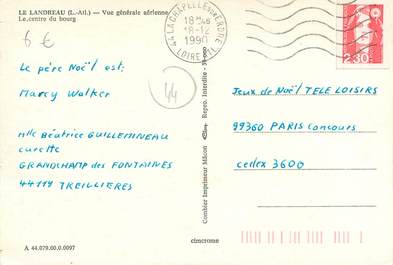 LE LANDREAU (L.-Atl.) — Vue générale aérienne
Le centre du bourg
6 €
44 LA CHAPELLE SUR ERDRE
18 H
18-12
1990
LOIRE ATL
2,30
Le père Noël est:
Marcy Walker
44
Mlle Béatrice GUILLEMINEAU
curette
GRANDCHAMP des FONTAINES
44119 TREILLIERES
Combier Imprimeur Mâcon
Repro. Interdite
Jeux de Noël TELE LOISIRS
99360 PARIS Concours
cedex 3600
A 44.079.00.0.0097
cimcrome